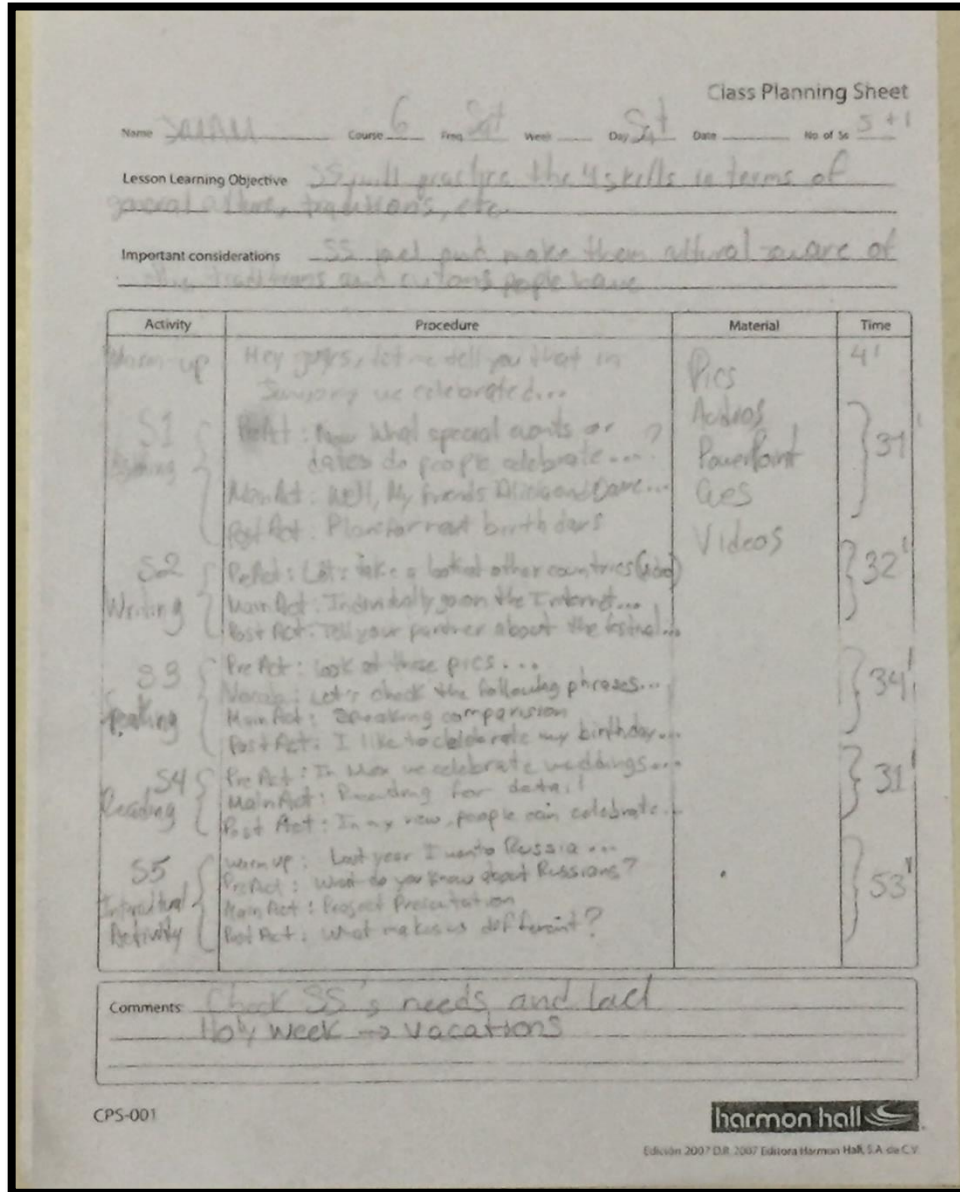 Class Planning Sheet
Name Course 6 Freq Sat Week Day Sat Date No. of Ss 5 +1
Lesson Learning Objective SS will practice the 4 skills in terms of
general culture, traditions, etc.
Important considerations SS and make them cultural aware of
the traditions and people have
Activity Procedure Material Time
Warm-up Hey guys, let me tell you that in 4'
we celebrated... Pics
S1 PreAct: Now What special events or ? Audios 31'
dates do people celebrate... PowerPoint
Main Act: Well, My friends Alicia and Dave...
Post Act: Plan for next birthdays Videos
S2 PreAct: Let's take a look at other countries (video) 32'
Writing Main Act: Individually go on the Internet...
Post Act: Tell your partner about the festival...
S3 Pre Act: Look at these pics... 34'
Vocab: Let's check the following phrases...
Speaking Main Act: Speaking comparision
Post Act: I like to celebrate my birthday...
S4 Pre Act: In Mex we celebrate weddings... 31'
Reading Main Act: Reading for detail
Post Act: In my view, people can celebrate...
S5 Warm up: Last year I went to Russia... 53'
PreAct: What do you know about Russians?
Intercultural Main Act: Project Presentation
Activity Post Act: What makes us different?
Comments Check SS's needs and lacl
Holy Week → vacations
CPS-001
harmon hall
Edición 2007 D.R. 2007 Editora Harmon Hall, S.A. de C.V.